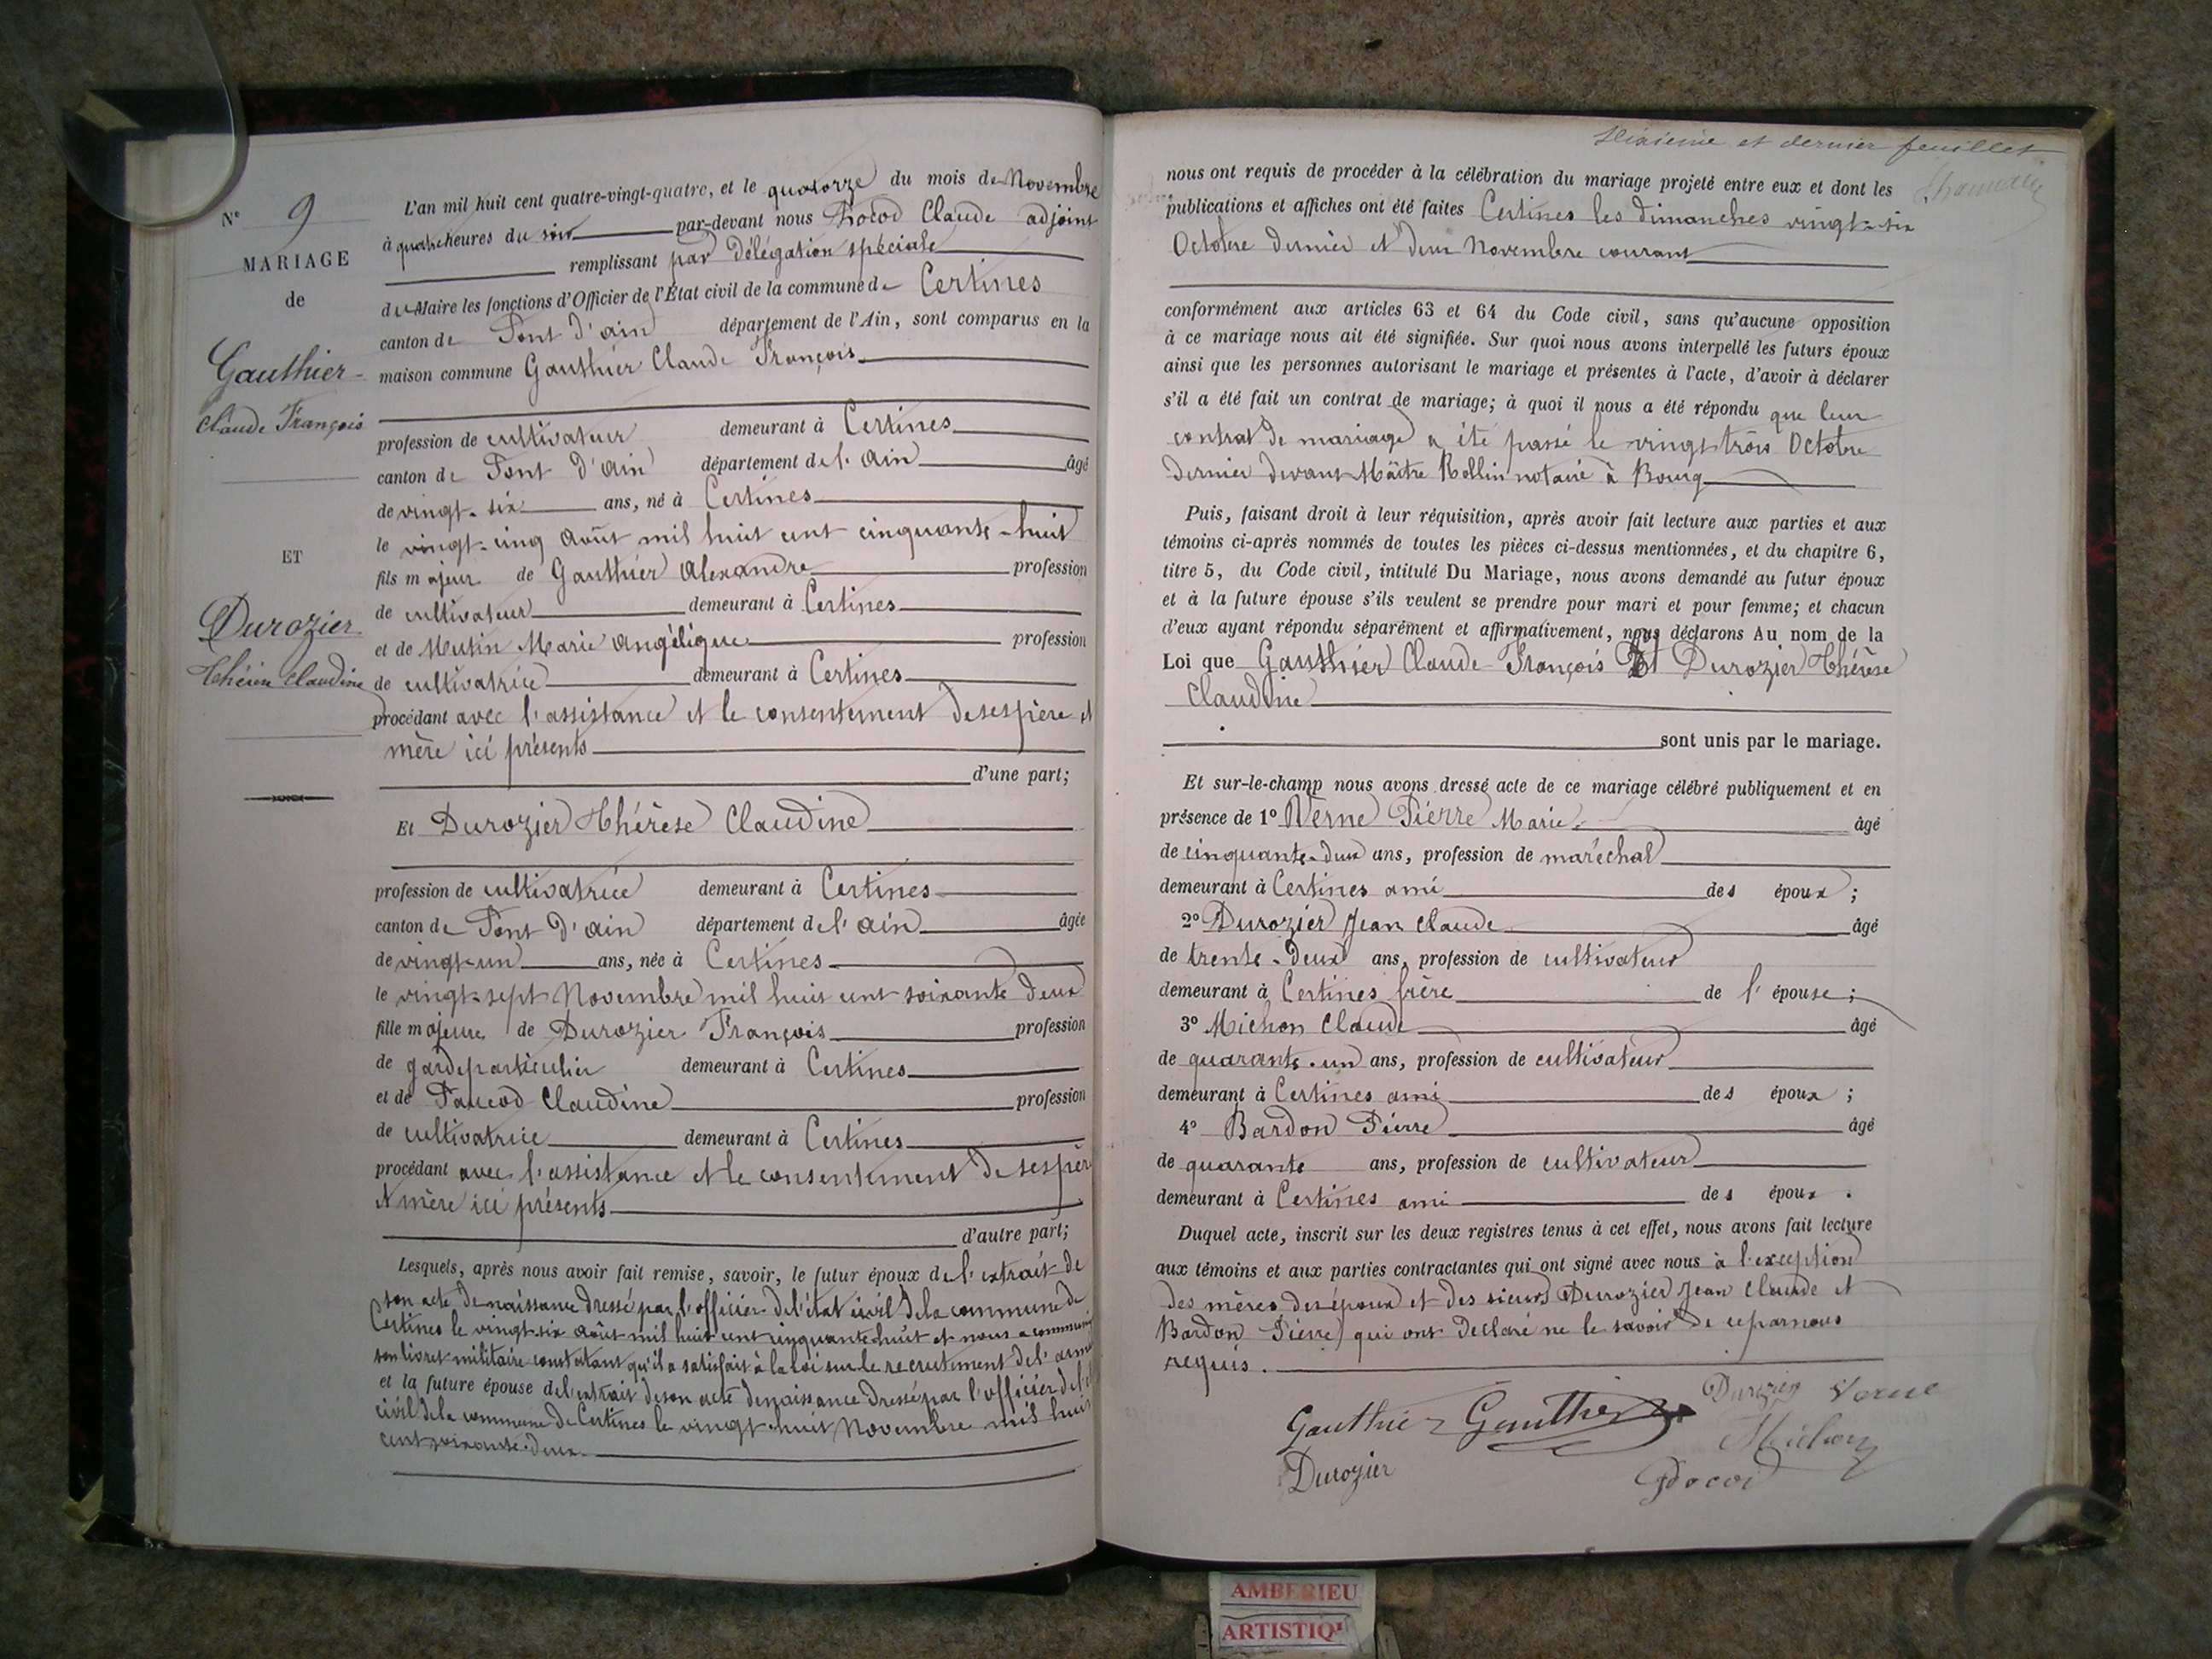 N° 9
MARIAGE
de
Gauthier
Claude François
ET
Durozier
Thérèse Claudine
L'an mil huit cent quatre-vingt-quatre, et le quatorze du mois de Novembre
à quatre heures du soir par-devant nous Claude adjoint
remplissant par délégation spéciale
du Maire les fonctions d'Officier de l'État civil de la commune de Certines
canton de Pont d'ain département de l'Ain, sont comparus en la
maison commune Gauthier Claude François
profession de cultivateur demeurant à Certines
canton de Pont d'ain département de l'ain âgé
de vingt-six ans, né à Certines
le vingt-cinq août mil huit cent cinquante-huit
fils majeur de Gauthier Alexandre profession
de cultivateur demeurant à Certines
et de Mutin Marie Angélique profession
de cultivatrice demeurant à Certines
procédant avec l'assistance et le consentement de ses père et
mère ici présents
d'une part;
Et Durozier Thérèse Claudine
profession de cultivatrice demeurant à Certines
canton de Pont d'ain département de l'ain âgée
de vingt-un ans, née à Certines
le vingt-sept Novembre mil huit cent soixante deux
fille majeure de Durozier François profession
de garde particulier demeurant à Certines
et de Paucod Claudine profession
de cultivatrice demeurant à Certines
procédant avec l'assistance et le consentement de ses père
et mère ici présents
d'autre part;
Lesquels, après nous avoir fait remise, savoir, le futur époux de l'extrait de
son acte de naissance dressé par l'officier de l'état civil de la commune de
Certines le vingt-six août mil huit cent cinquante huit et nous a
son livret militaire constatant qu'il a satisfait à la loi sur le recrutement de l'
et la future épouse de l'extrait de son acte de naissance dressé par l'officier de l'
civil de la commune de Certines le vingt-huit Novembre mil huit
cent soixante-deux
et dernier feuillet
nous ont requis de procéder à la célébration du mariage projeté entre eux et dont les
publications et affiches ont été faites Certines les dimanches vingt-six
Octobre dernier et deux Novembre courant
conformément aux articles 63 et 64 du Code civil, sans qu'aucune opposition
à ce mariage nous ait été signifiée. Sur quoi nous avons interpellé les futurs époux
ainsi que les personnes autorisant le mariage et présentes à l'acte, d'avoir à déclarer
s'il a été fait un contrat de mariage; à quoi il nous a été répondu que leur
contrat de mariage a été passé le vingt trois Octobre
dernier devant Maître Rollin notaire à Bourg
Puis, faisant droit à leur réquisition, après avoir fait lecture aux parties et aux
témoins ci-après nommés de toutes les pièces ci-dessus mentionnées, et du chapitre 6,
titre 5, du Code civil, intitulé Du Mariage, nous avons demandé au futur époux
et à la future épouse s'ils veulent se prendre pour mari et pour femme; et chacun
d'eux ayant répondu séparément et affirmativement, nous déclarons Au nom de la
Loi que Gauthier Claude François Et Durozier Thérèse
Claudine
sont unis par le mariage.
Et sur-le-champ nous avons dressé acte de ce mariage célébré publiquement et en
présence de 1° Verne Pierre Marie âgé
de cinquante-deux ans, profession de maréchal
demeurant à Certines ami des époux;
2° Durozier Jean Claude âgé
de trente-deux ans, profession de cultivateur
demeurant à Certines frère de l'épouse;
3° Michon Claude âgé
de quarante-un ans, profession de cultivateur
demeurant à Certines ami des époux;
4° Bardon Pierre âgé
de quarante ans, profession de cultivateur
demeurant à Certines ami des époux.
Duquel acte, inscrit sur les deux registres tenus à cet effet, nous avons fait lecture
aux témoins et aux parties contractantes qui ont signé avec nous à l'exception
des mères des époux et des sieurs Durozier Jean Claude et
Bardon Pierre qui ont déclaré ne le savoir de ce par nous
requis.
Gauthier Gauthier Durozier Verne
Durozier Michon
AMBERIEU
ARTISTIQ